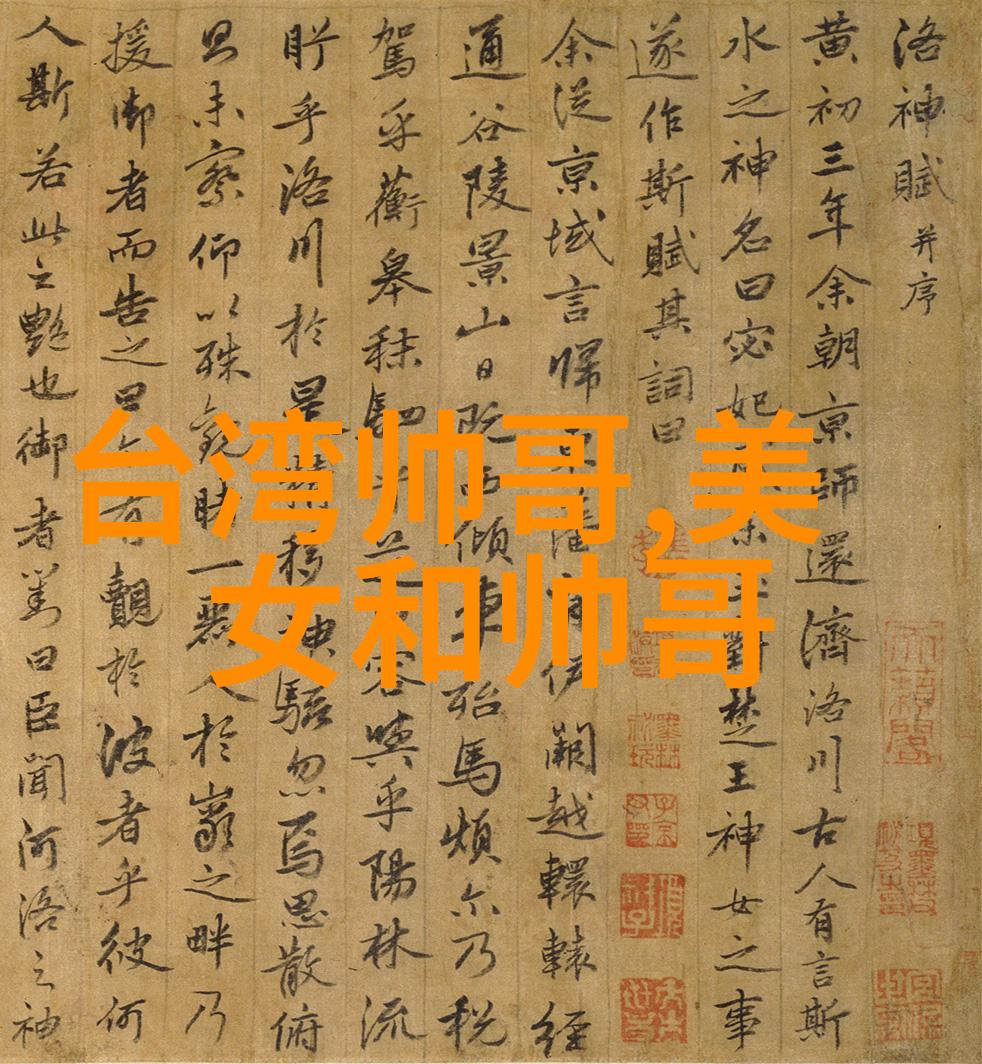 台湾帅哥,美
女和帅哥
洛神賦并序
黄初三年余朝京師還濟洛川古人有言斯
水之神名曰宓妃宋玉對楚王神女之事
遂作斯賦其詞曰
余從京域言歸東藩背伊闕越轘轅經
通谷陵景山日既西傾車殆馬煩尒乃税
駕乎蘅皋秣駟乎芝田容與乎陽林流
眄乎洛川於是精移神駭忽焉思散俯
則未察仰以殊觀睹一麗人於巖之畔乃
援御者而告之曰有覿於彼者乎彼何
人斯若此之艷也御者對曰臣聞河洛之神